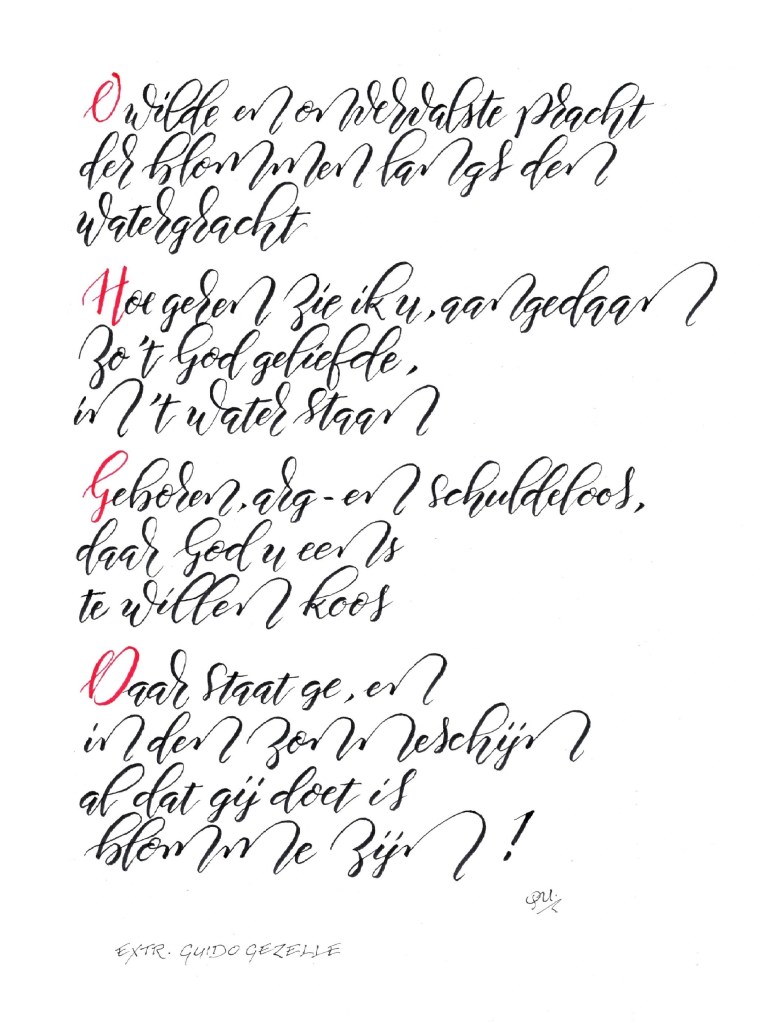 O wilde en onvervalste pracht
der blommen langs den
watergracht
Hoe geren zie ik u, aangedaan
zo 't God geliefde,
in 't water staan
Geboren, arg- en schuldeloos,
daar God u eens
te willen koos
Daar staat ge, en
in den zonneschijn
al dat gij doet is
blomme zijn!
EXTR. GUIDO GEZELLE